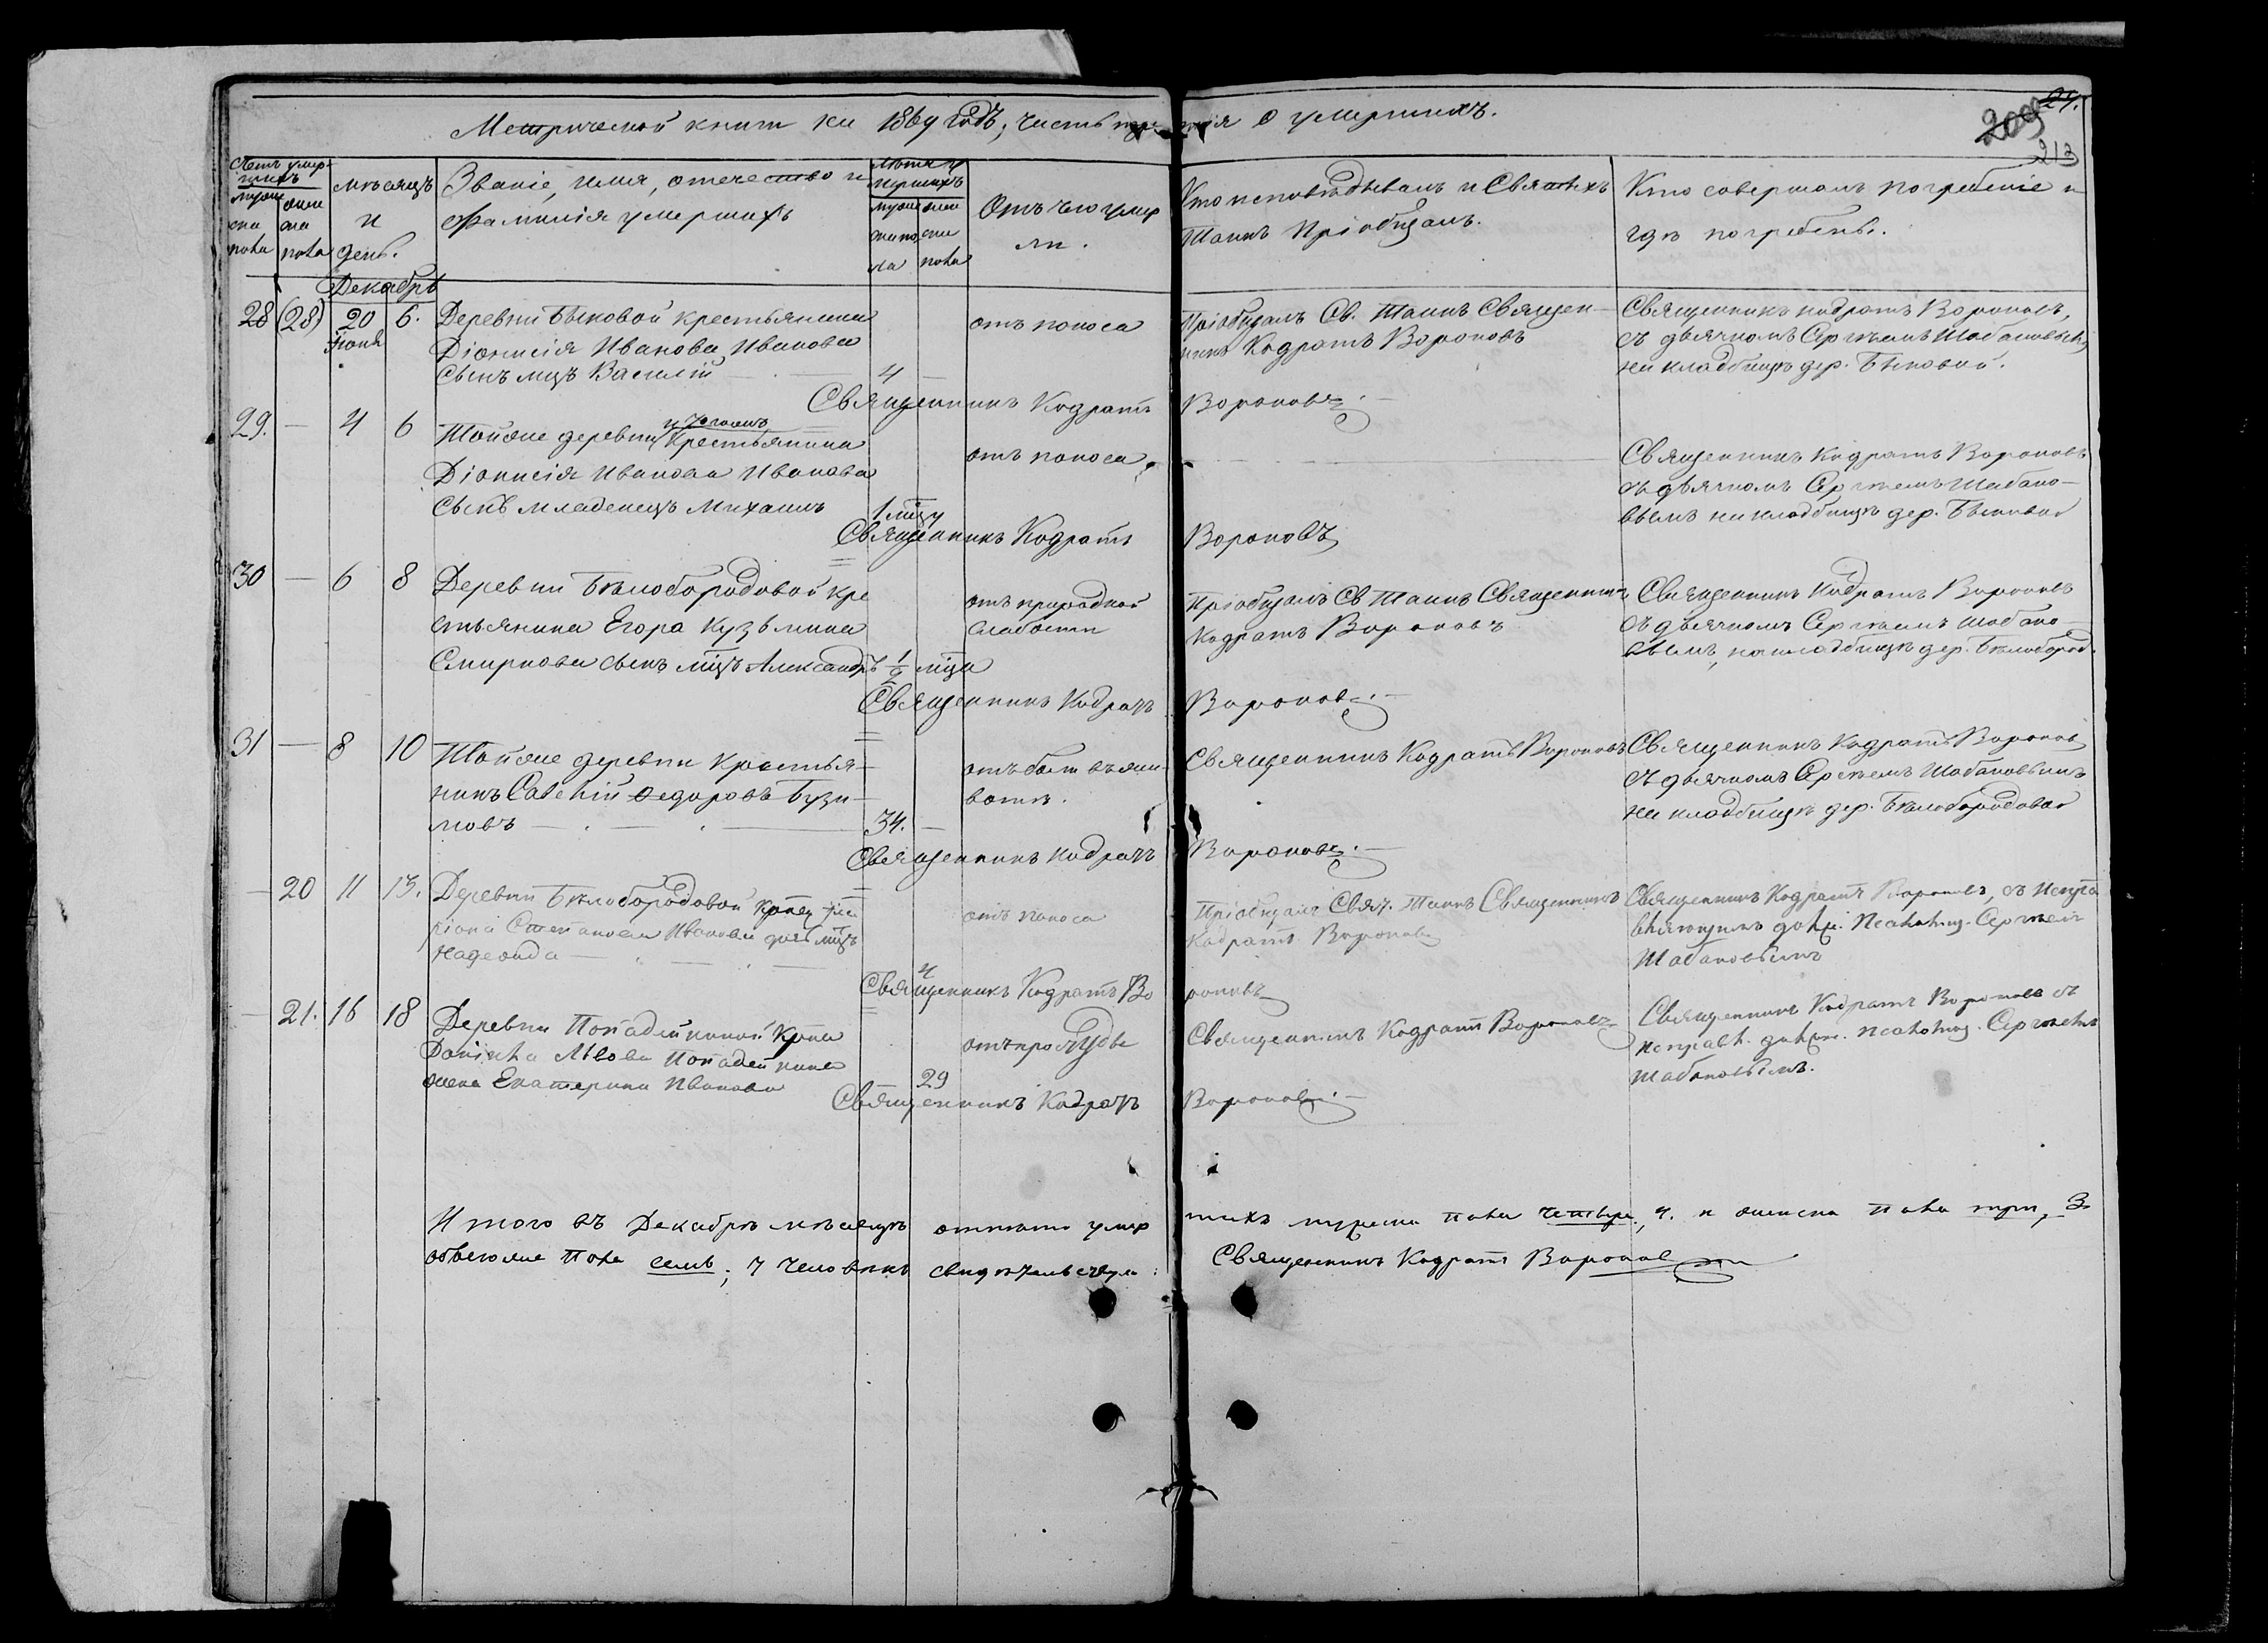 Метрической книги на 1869 годъ, часть третія о умершихъ.
24.
209
213
Счетъ умершихъ
мужеска пола
женска пола
мѣсяцъ и день.
Званіе, имя, отечество и фамилія умершихъ
Лѣта умершихъ
мужеска пола
женска пола
Отъ чего умерли.
Кто исповѣдывалъ и Святыхъ Таинъ Пріобщалъ.
Кто совершалъ погребеніе и гдѣ погребены.
Декабрь
28 (28) 20 6. Деревни Быковой крестьянина
Діонисія Иванова Иванова
сынъ млцъ Василій 4
отъ поноса
Пріобщалъ Св. Таинъ Священникъ Кодратъ Вороновъ
Священникъ Кодратъ Вороновъ,
съ дьячкомъ Сергѣемъ Шабановымъ,
на кладбищѣ дер. Быковой.
Священникъ Кодратъ Вороновъ.
29. — 4 6 Тойже деревни крестьянина
Діонисія Иванова Иванова
сынъ младенецъ Михаилъ
отъ поноса
Священникъ Кодратъ Вороновъ
съ дьячкомъ Сергѣемъ Шабано-
вымъ на кладбищѣ дер. Быковой
Священникъ Кодратъ Вороновъ
30 — 6 8 Деревни Бѣлобородовой кре
стьянина Егора Кузьмина
Смирнова сынъ млцъ Александръ 1/2 мца
отъ природной
слабости
Пріобщалъ Св Таинъ Священникъ
Кодратъ Вороновъ
Священникъ Кодратъ Вороновъ
съ дьячкомъ Сергѣемъ Шабано-
вымъ, на кладбищѣ дер. Бѣлобород.
Священникъ Кодратъ Вороновъ.
31 — 8 10 Тойже деревни Крестья-
нинъ Федоровъ Бузи-
мовъ 34.
отъ боли въ жи-
вотѣ.
Священникъ Кодратъ Вороновъ
Священникъ Кодратъ Вороновъ
съ дьячкомъ Сергѣемъ Шабановымъ
на кладбищѣ дер. Бѣлобородовой
Священникъ Кодратъ Вороновъ.
— 20 11 13. Деревни Бѣлобородовой
Степанова Иванова дочь млцъ
Надежда 4
отъ поноса
Пріобщалъ Свят. Таинъ Священникъ
Кодратъ Вороновъ
Священникъ Кодратъ Вороновъ, съ
Сергѣемъ
Шабановымъ
Священникъ Кодратъ Вороновъ
— 21. 16 18 Деревни
Львова
жена Екатерина Иванова 29
отъ простуды
Священникъ Кодратъ Вороновъ
Священникъ Кодратъ Вороновъ съ
Сергѣемъ
Шабановымъ.
Священникъ Кодратъ Вороновъ.
Итого въ Декабрѣ мѣсяцѣ умершихъ мужеска пола четыре, 4. и женска пола три, 3
обоегоже пола семь, 7 человѣкъ Священникъ Кодратъ Вороновъ